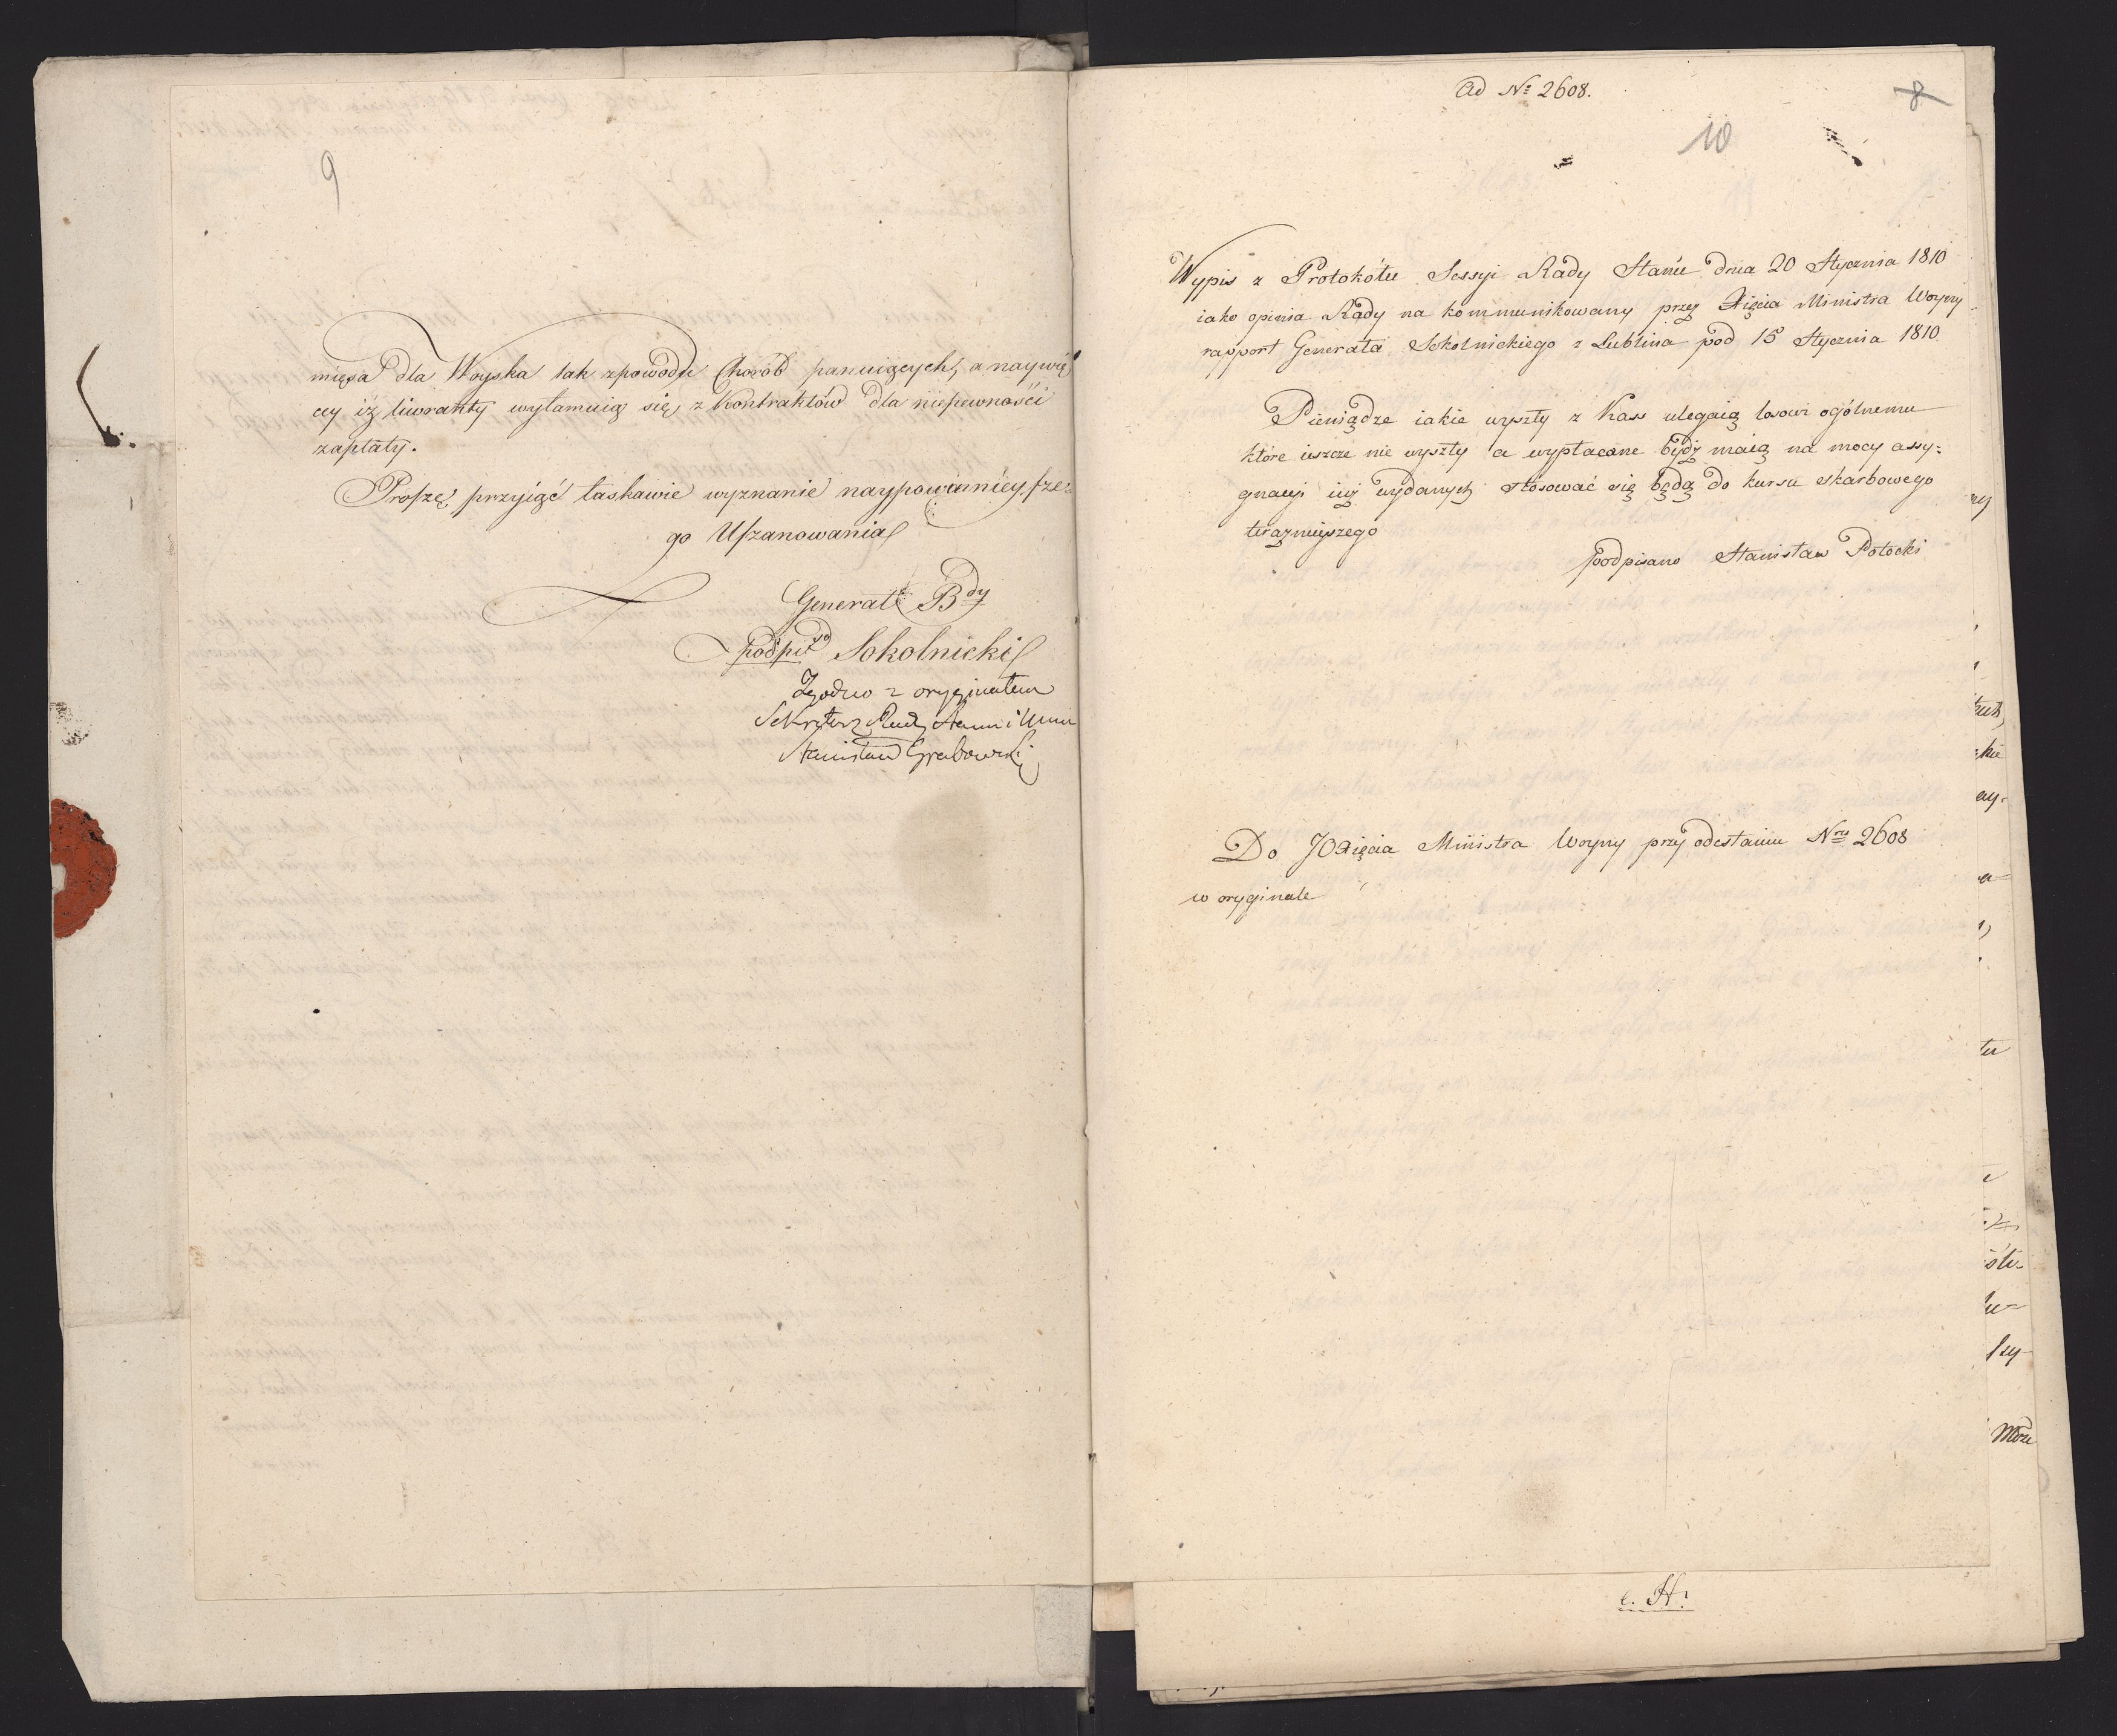 9
mięsa dla Woyska tak z powodu Chorób panuiących, a naywię
cey iż liweranty wyłamuią się z Kontraktów dla niepewności
zapłaty.
Proszę przyiąć łaskawie wyznanie naypowinnieyſze-
go Uſzanowania
Generał Bdy
podpisd Sokolnicki
Zgodno z oryginałem
Sekretarz Rady Stanu i Minis
Stanisław Grabowski
Ad No 2608.
8
10
Wypis z Protokółu Sessyi Rady Stanu dnia 20 Stycznia 1810
iako opinia Rady na kommunikowany przez Xięcia Ministra Woyny
rapport Generała Sokolnickiego z Lublina pod 15 Stycznia 1810
Pieniądze iakie wyszły z Kass ulegaią losowi ogólnemu
które ieszcze nie wyszły a wypłacone bydź maią na mocy assy=
gnacyi iuż wydanych stosować się będą do kursu skarbowego
teraznieyszego
podpisano Stanisław Potocki
Do JOXięcia Ministra Woyny przy odesłaniu Nro 2608
w oryginale